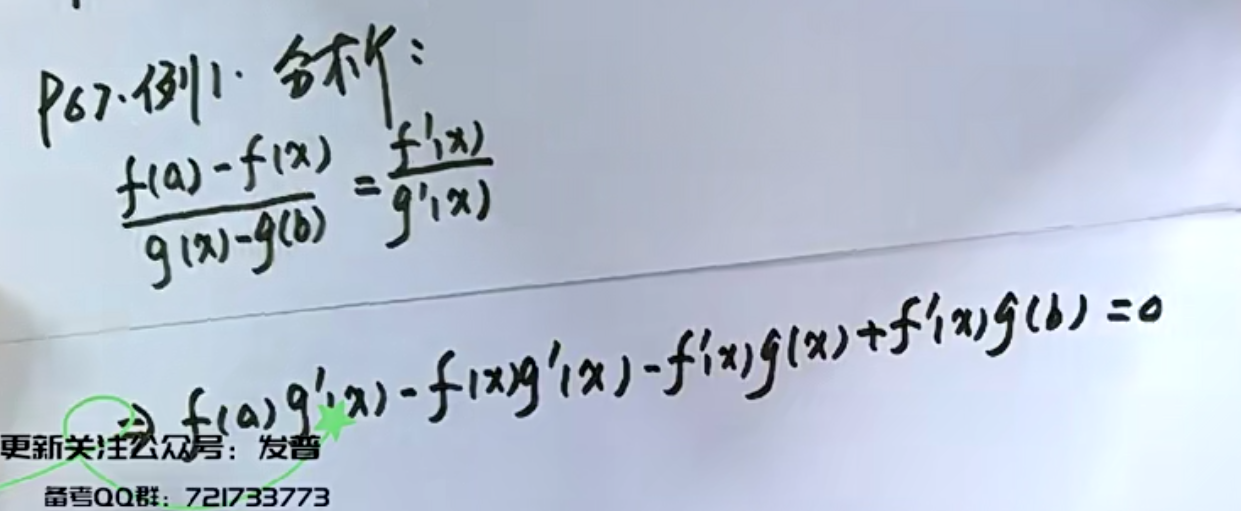 P67.例1. 分析:
\frac{f(a)-f(x)}{g(x)-g(b)} = \frac{f'(x)}{g'(x)}
⇒ f(a)g'(x)-f(x)g'(x)-f'(x)g(x)+f'(x)g(b)=0
更新关注公众号：发普
备考QQ群：721733773